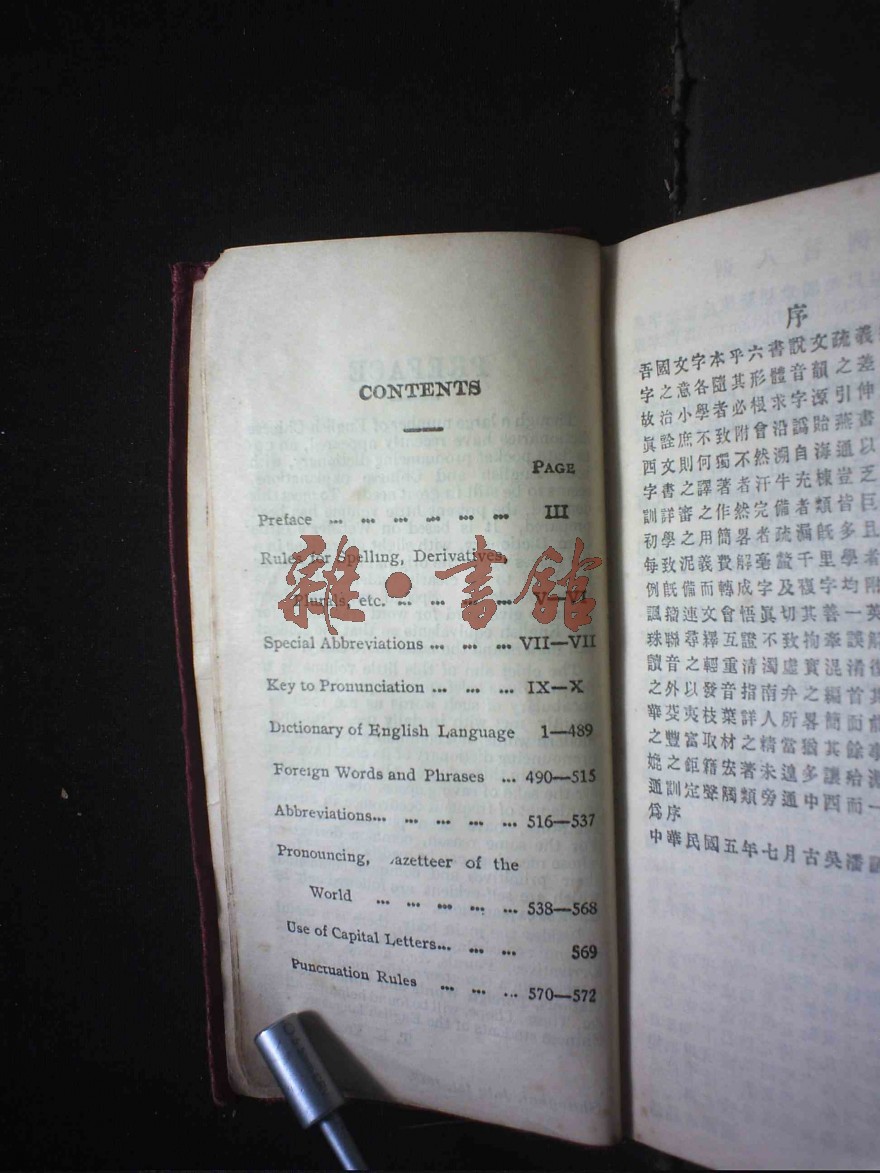 CONTENTS
PAGE
Preface ... ... ... ... ... ... III
Rules for Spelling, Derivatives,
Plurals, etc. ... ... ... ... V—VI
Special Abbreviations ... ... ... VII—VII
Key to Pronunciation ... ... ... IX—X
Dictionary of English Language 1—489
Foreign Words and Phrases ... 490—515
Abbreviations... ... ... ... ... 516—537
Pronouncing, azetteer of the
World ... ... ... ... ... 538—568
Use of Capital Letters... ... ... 569
Punctuation Rules ... ... ... 570—572
雜·書館
序
吾國文字本乎六書說文疏義
字之意各隨其形體音韻之差
故治小學者必根求字源引伸
眞詮庶不致附會沿譌貽燕書
西文則何獨不然溯自海通以
字書之譯著者汗牛充棟豈乏
訓詳審之作然完備者類皆巨
初學之用簡畧者疏漏旣多且
每致泥義費解毫釐千里學者
例旣備而轉成字及複字均附
諷籀速文會悟眞切其善一英
殊聯尋繹互證不致拘牽誤解
讀音之輕重清濁虛實混淆復
之外以發音指南弁之編首其
華芟夷枝葉詳人所畧簡而
之豐富取材之精當猶其餘事
姚之鉅籍宏著未遑多讓哈
通訓定聲觸類旁通中西而一
爲序
中華民國五年七月古吳潘